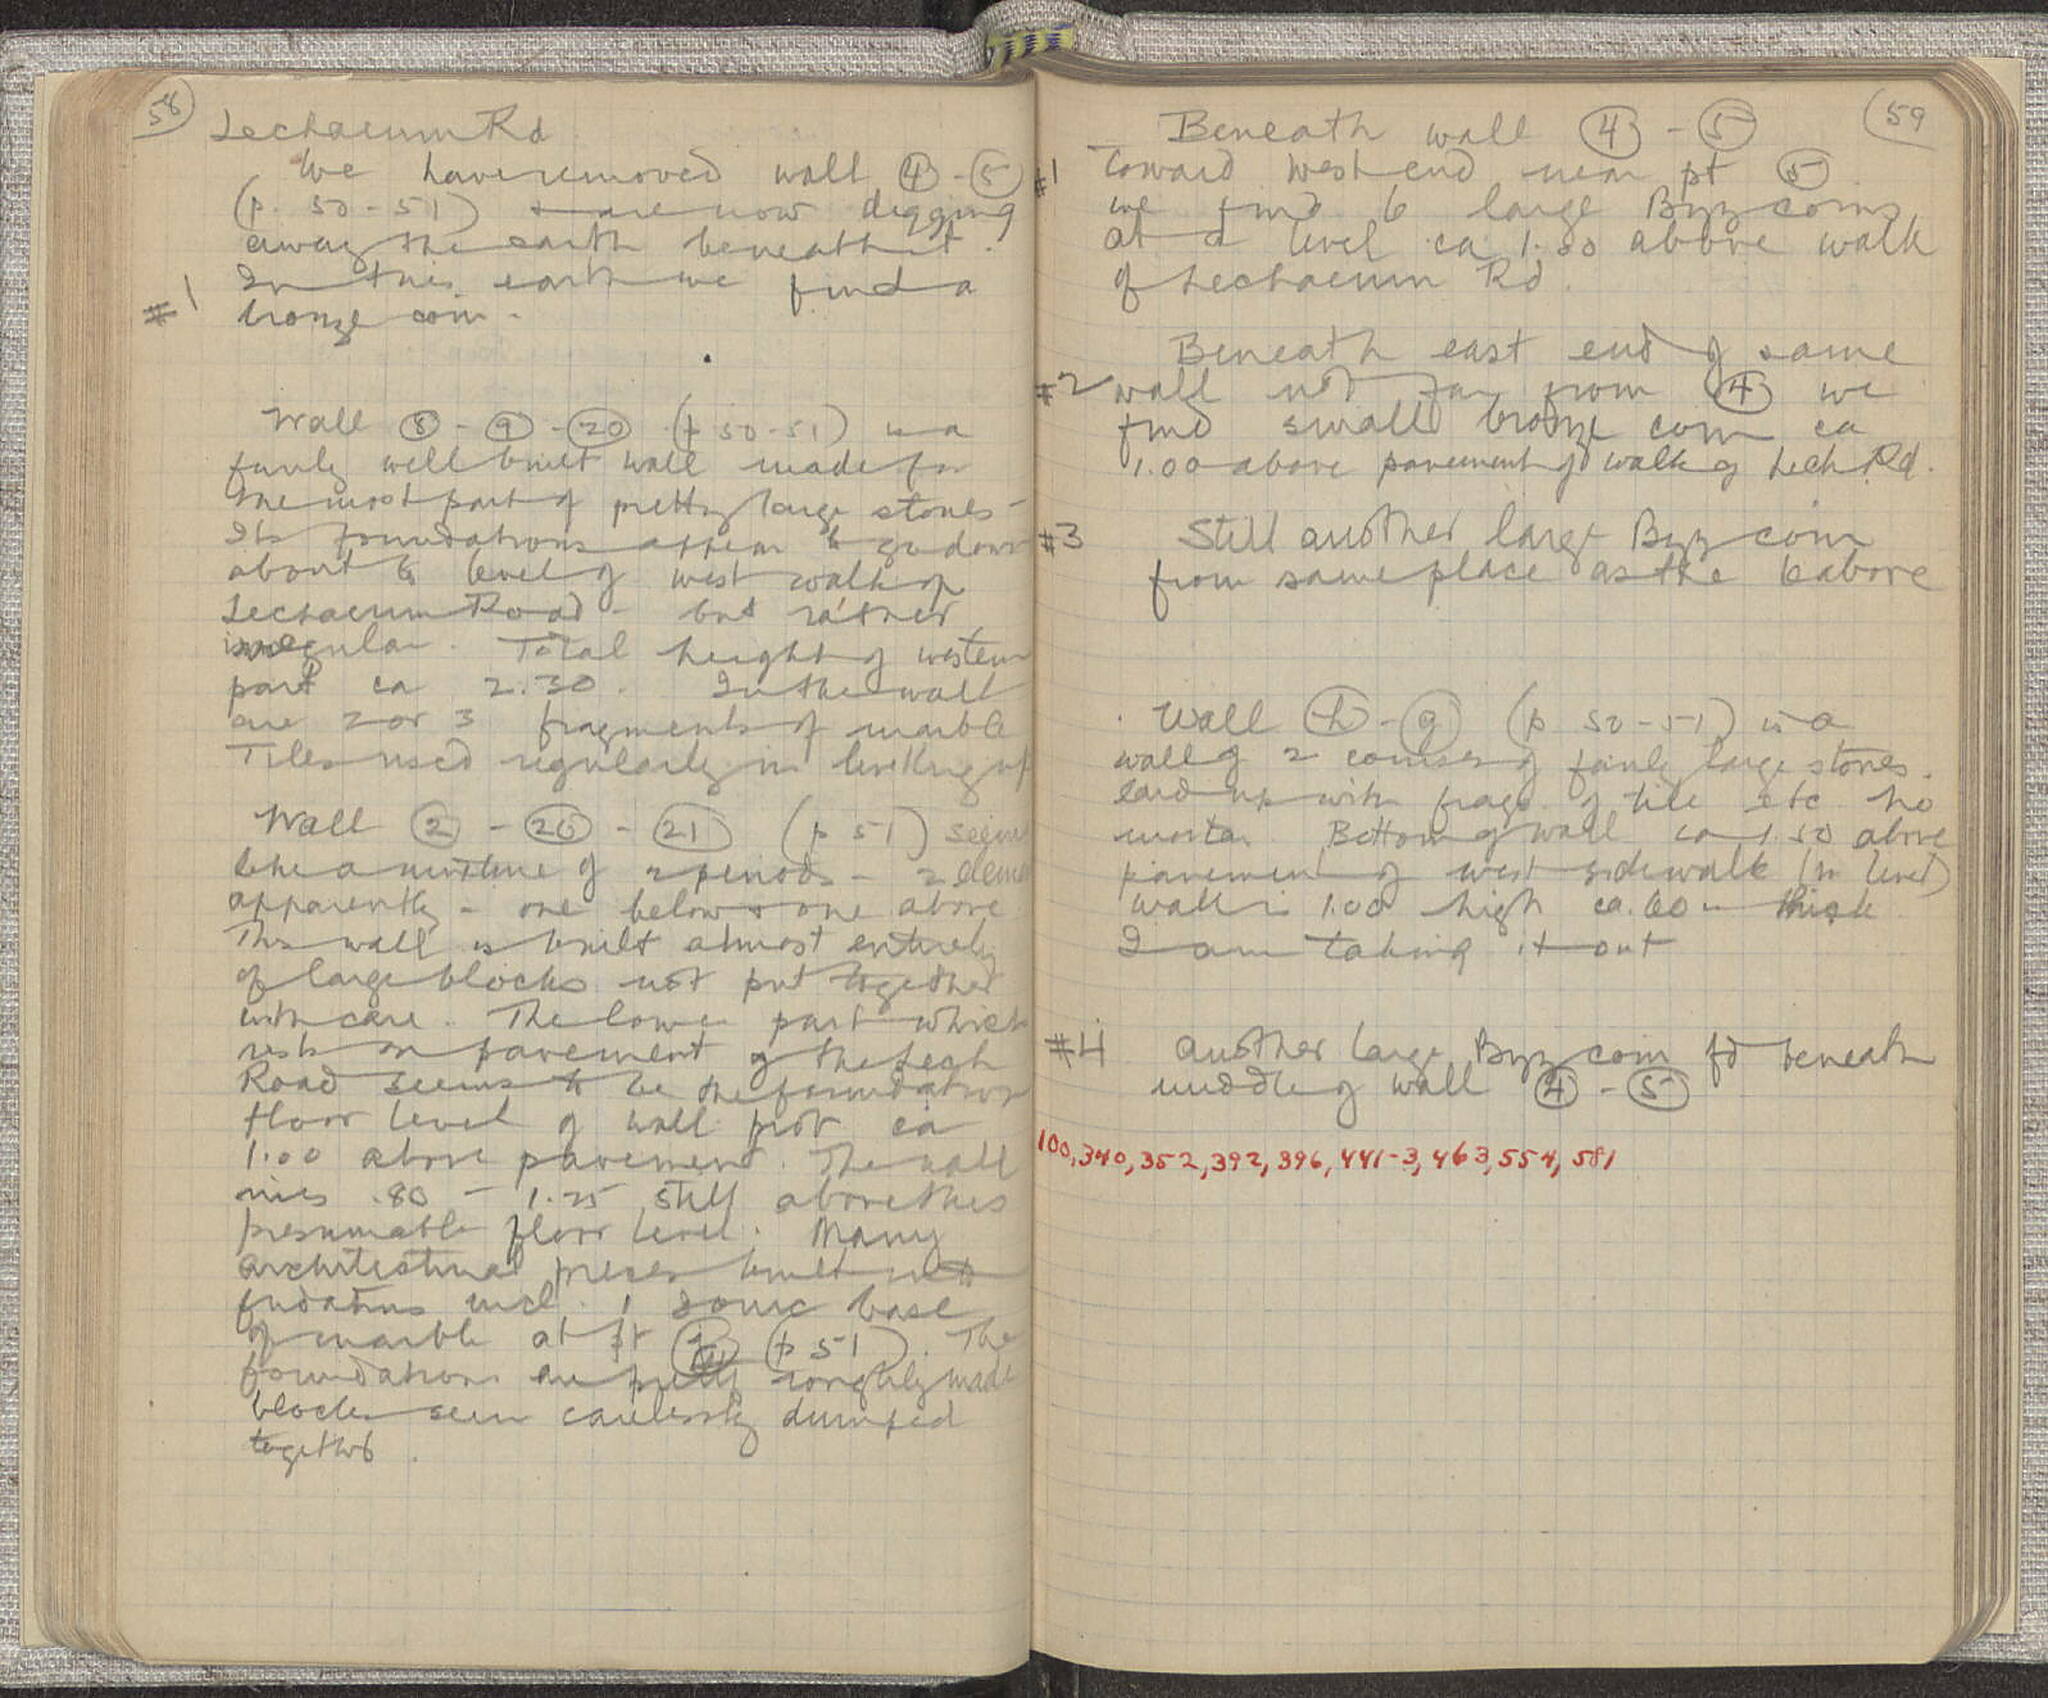 58
Lechaeum Rd
We have removed wall 4 - 5
(p. 50-51) & are now digging
away the earth beneath it.
In this earth we find a
#1
bronze coin -
Wall 8 - 9 - 20 (p 50-51) is a
fairly well built wall made for
the most part of pretty large stones -
Its foundations appear to go down
about to level of west walk of
Lechaeum Road - but rather
irregular. Total height of western
part ca 2.30. In the wall
are 2 or 3 fragments of marble
Tiles used regularly in levelling up
Wall 2 - 20 - 21 (p 51) seems
like a mixture of 2 periods - 2
apparently - one below & one above
This wall is built almost entirely
of large blocks not put together
with care. The lower part which
rests on pavement of the Lech
Road seems to be the foundation
floor level of wall prob ca
1.00 above pavement. The wall
rises .80 - 1.25 still above this
presumable floor level. Many
architectural pieces built into
fndations incl. 1 Ionic base
of marble at pt (p 51). The
foundations are pretty roughly made
blocks seem carelessly dumped
together.
59
Beneath wall 4 - 5
#1 toward west end near pt 5
we find 6 large Byz coins
at a level ca 1.50 above walk
of Lechaeum Rd.
Beneath east end of same
#2 wall not far from 4 we
find small bronze coin ca
1.00 above pavement of walk of Lech Rd.
#3 Still another large Byz coin
from same place as the 6 above
Wall h - g (p 50-51) is a
wall of 2 courses of fairly large stones -
laid up with frags of tile etc no
mortar. Bottom of wall ca 1.50 above
pavement of west sidewalk (in level)
wall is 1.00 high ca .60 thick
I am taking it out
#4 Another large Byz coin fd beneath
middle of wall 4 - 5
100, 340, 352, 392, 396, 441-3, 463, 554, 581